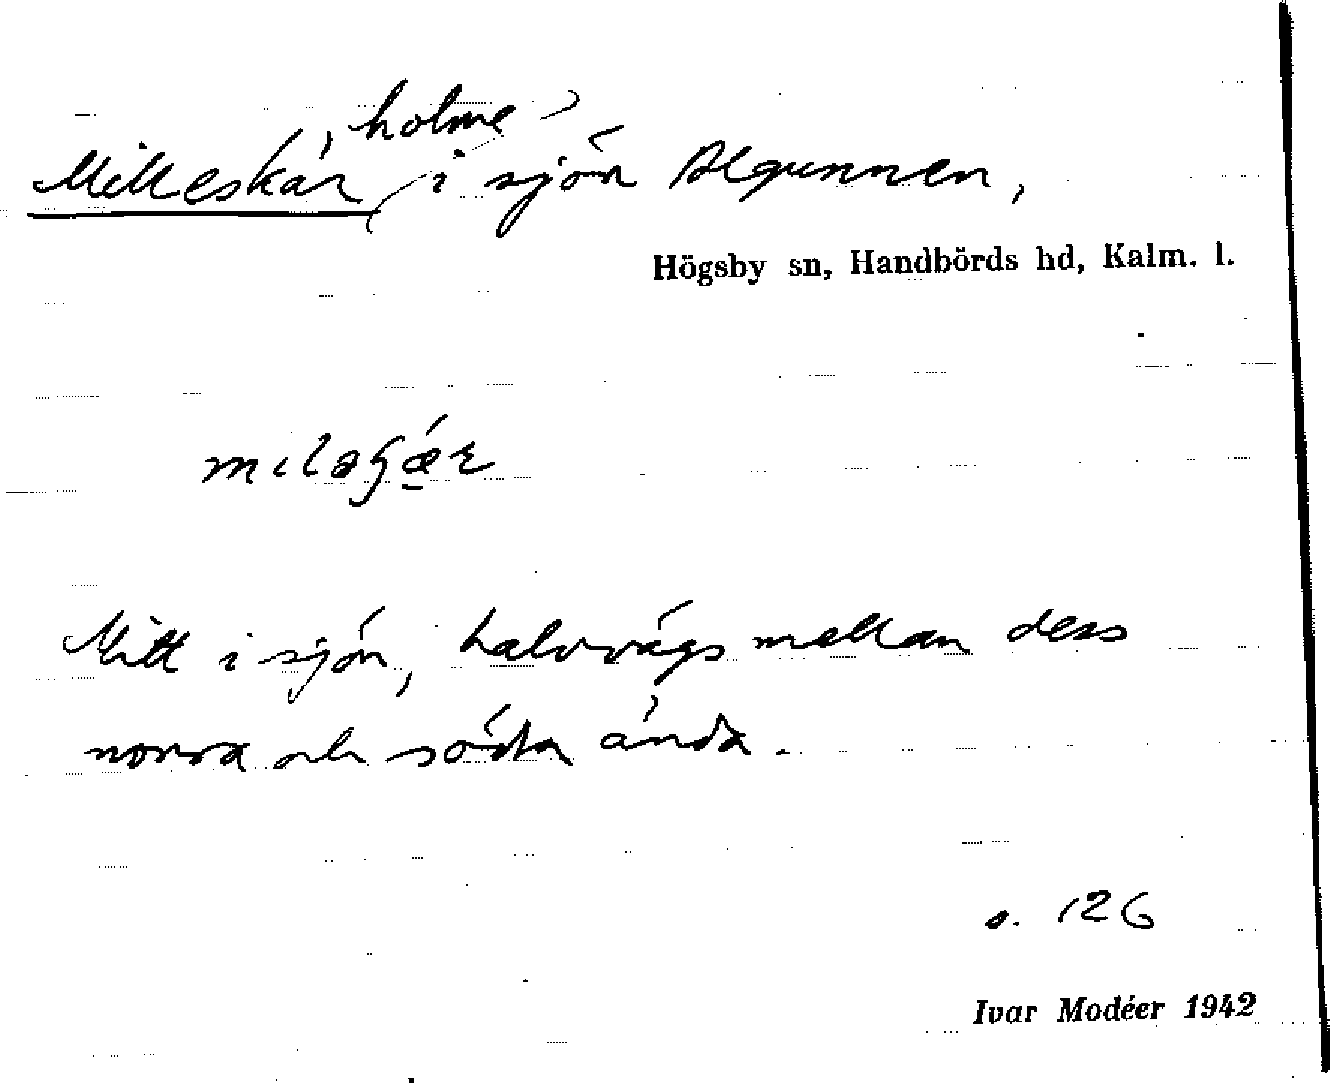 Milleskär, holme i sjön Algunnen,
Högsby sn, Handbörds hd, Kalm. l.
Mitt i sjön, halvvägs mellan dess
norra och södra ända.
s. 126
Ivar Modéer 1942